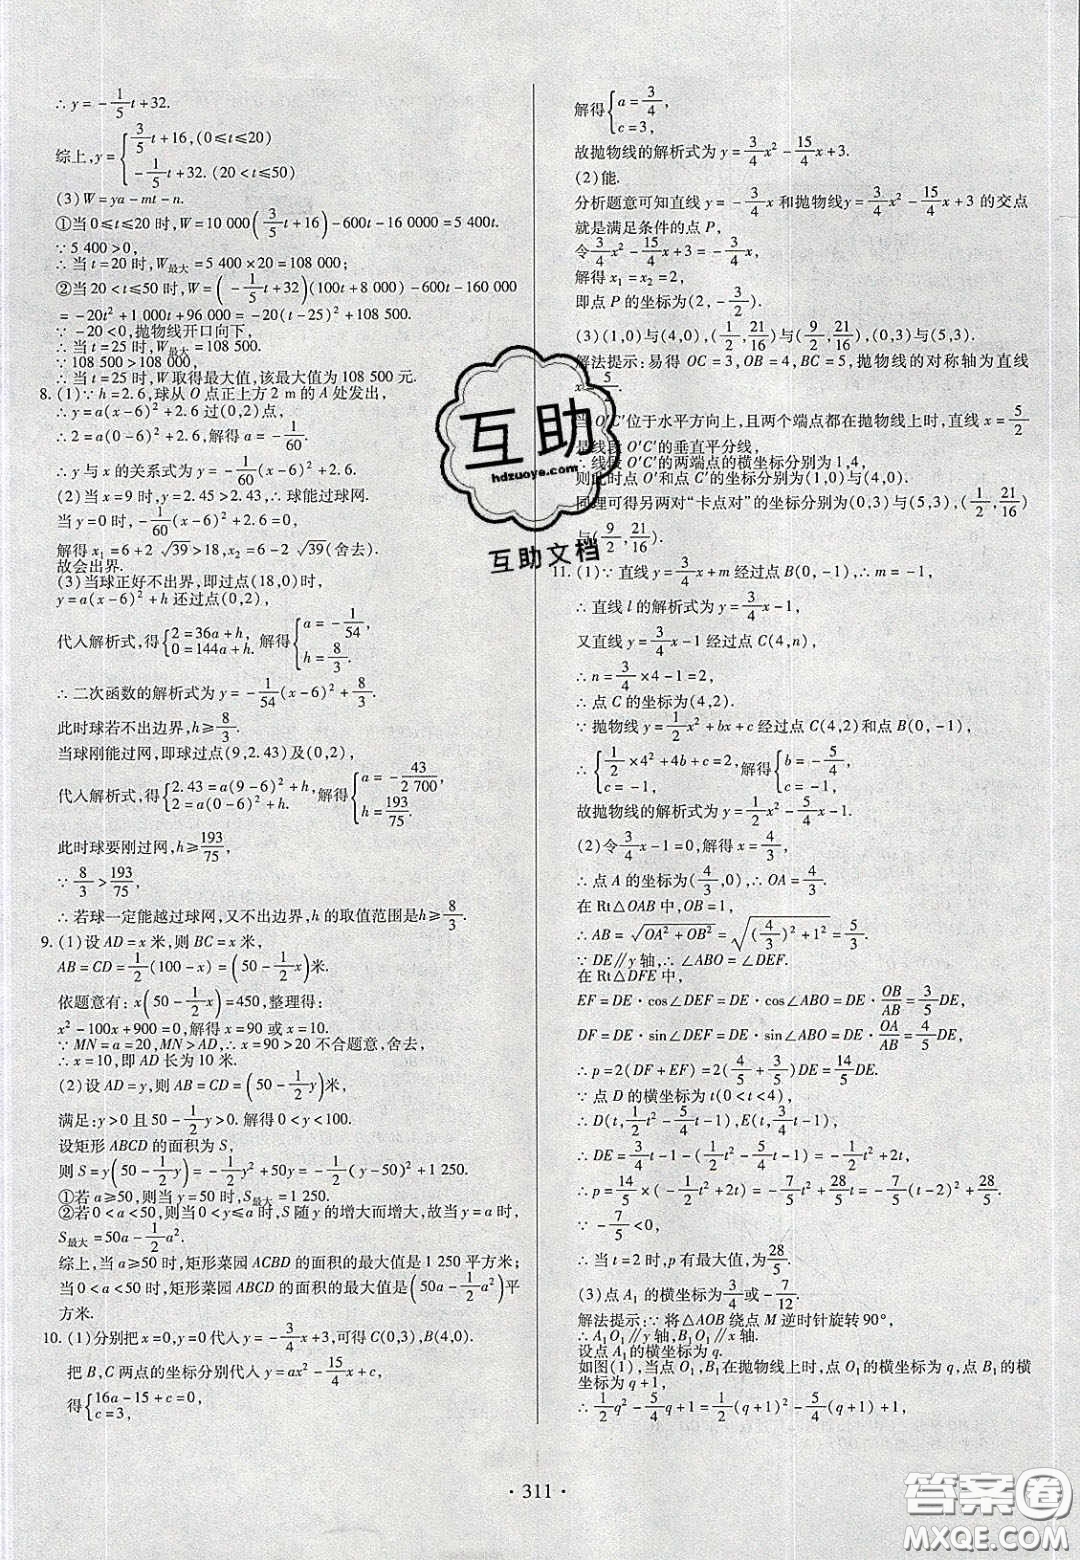 ∴ y = -1/5 t + 32.
综上, y = { 3/5 t + 16, (0≤t≤20)
-1/5 t + 32. (20<t≤50)
(3) W = ya - mt - n.
①当 0≤t≤20 时, W = 10 000(3/5 t + 16) - 600t - 16 0000 = 5 400t.
∵ 5 400 > 0,
∴ 当 t = 20 时, W最大 = 5 400 × 20 = 108 000;
②当 20<t≤50 时, W = (-1/5 t + 32)(100t + 8 000) - 600t - 160 000
= -20t² + 1 000t + 96 000 = -20(t - 25)² + 108 500.
∵ -20 < 0, 抛物线开口向下,
∴ 当 t = 25 时, W最大 = 108 500.
∵ 108 500 > 108 000,
∴ 当 t = 25 时, W 取得最大值, 该最大值为 108 500 元.
8. (1) ∵ h = 2.6, 球从 O 点正上方 2 m 的 A 处发出,
∴ y = a(x - 6)² + 2.6 过(0,2)点,
∴ 2 = a(0 - 6)² + 2.6, 解得 a = -1/60,
∴ y 与 x 的关系式为 y = -1/60(x - 6)² + 2.6.
(2) 当 x = 9 时, y = 2.45 > 2.43, ∴ 球能过球网.
当 y = 0 时, -1/60(x - 6)² + 2.6 = 0,
解得 x₁ = 6 + 2√39 > 18, x₂ = 6 - 2√39(舍去).
故会出界.
(3) 当球正好不出界时, 即过点(18,0)时,
y = a(x - 6)² + h 还过点(0,2),
代入解析式, 得 { 2 = 36a + h, 0 = 144a + h. 解得 { a = -1/54, h = 8/3.
∴ 二次函数的解析式为 y = -1/54(x - 6)² + 8/3.
此时球若不出边界, h ≥ 8/3.
当球刚能过网, 即球过点(9,2.43)及(0,2),
代入解析式, 得 { 2.43 = a(9 - 6)² + h, 2 = a(0 - 6)² + h. 解得 { a = -43/2 700, h = 193/75.
此时球要刚过网, h ≥ 193/75,
∵ 8/3 > 193/75,
∴ 若球一定能越过球网, 又不出边界, h 的取值范围是 h ≥ 8/3.
9. (1) 设 AD = x 米, 则 BC = x 米,
AB = CD = 1/2(100 - x) = (50 - 1/2 x)米.
依题意有: x(50 - 1/2 x) = 450, 整理得:
x² - 100x + 900 = 0, 解得 x = 90 或 x = 10.
∵ MN = a = 20, MN > AD, ∴ x = 90 > 20 不合题意, 舍去,
∴ x = 10, 即 AD 长为 10 米.
(2) 设 AD = y, 则 AB = CD = (50 - 1/2 y)米,
满足: y > 0 且 50 - 1/2 y > 0. 解得 0 < y < 100.
设矩形 ABCD 的面积为 S,
则 S = y(50 - 1/2 y) = -1/2 y² + 50y = -1/2(y - 50)² + 1 250.
①若 a≥50, 则当 y = 50 时, S最大 = 1 250.
②若 0<a<50, 则当 0<y≤a 时, S 随 y 的增大而增大, 故当 y = a 时,
S最大 = 50a - 1/2 a².
综上, 当 a≥50 时, 矩形菜园 ACBD 的面积的最大值是 1 250 平方米;
当 0<a<50 时, 矩形菜园 ABCD 的面积的最大值是(50a - 1/2 a²)平
方米.
10. (1) 分别把 x = 0, y = 0 代入 y = -3/4 x + 3, 可得 C(0,3), B(4,0).
把 B, C 两点的坐标分别代入 y = ax² - 15/4 x + c,
得 { 16a - 15 + c = 0, c = 3,
解得 { a = 3/4, c = 3,
故抛物线的解析式为 y = 3/4 x² - 15/4 x + 3.
(2) 能.
分析题意可知直线 y = -3/4 x 和抛物线 y = 3/4 x² - 15/4 x + 3 的交点
就是满足条件的点 P,
令 3/4 x² - 15/4 x + 3 = -3/4 x,
解得 x₁ = x₂ = 2,
即点 P 的坐标为(2, -3/2).
(3) (1,0)与(4,0), (1/2, 21/16)与(9/2, 21/16), (0,3)与(5,3).
解法提示: 易得 OC = 3, OB = 4, BC = 5, 抛物线的对称轴为直线
x = 5/2.
当 O′C′位于水平方向上, 且两个端点都在抛物线上时, 直线 x = 5/2
是线段 O′C′的垂直平分线,
∴ 线段 O′C′的两端点的横坐标分别为 1,4,
则此时点 O′和点 C′的坐标分别为(1,0)与(4,0).
同理可得另两对“卡点对”的坐标分别为(0,3)与(5,3), (1/2, 21/16)
与(9/2, 21/16).
11. (1) ∵ 直线 y = 3/4 x + m 经过点 B(0, -1), ∴ m = -1,
∴ 直线 l 的解析式为 y = 3/4 x - 1,
又直线 y = 3/4 x - 1 经过点 C(4,n),
∴ n = 3/4 × 4 - 1 = 2,
∴ 点 C 的坐标为(4,2).
∵ 抛物线 y = 1/2 x² + bx + c 经过点 C(4,2)和点 B(0, -1),
∴ { 1/2 × 4² + 4b + c = 2, c = -1, 解得 { b = -5/4, c = -1,
故抛物线的解析式为 y = 1/2 x² - 5/4 x - 1.
(2) 令 3/4 x - 1 = 0, 解得 x = 4/3,
∴ 点 A 的坐标为(4/3, 0), ∴ OA = 4/3.
在 Rt△OAB 中, OB = 1,
∴ AB = √(OA² + OB²) = √((4/3)² + 1²) = 5/3.
∵ DE∥y 轴, ∴ ∠ABO = ∠DEF.
在 Rt△DFE 中,
EF = DE · cos∠DEF = DE · cos∠ABO = DE · OB/AB = 3/5 DE,
DF = DE · sin∠DEF = DE · sin∠ABO = DE · OA/AB = 4/5 DE,
∴ p = 2(DF + EF) = 2(4/5 + 3/5)DE = 14/5 DE.
∵ 点 D 的横坐标为 t(0<t<4),
∴ D(t, 1/2 t² - 5/4 t - 1), E(t, 3/4 t - 1),
∴ DE = 3/4 t - 1 - (1/2 t² - 5/4 t - 1) = -1/2 t² + 2t,
∴ p = 14/5 × (-1/2 t² + 2t) = -7/5 t² + 28/5 t = -7/5(t - 2)² + 28/5.
∵ -7/5 < 0,
∴ 当 t = 2 时, p 有最大值, 为 28/5.
(3) 点 A₁ 的横坐标为 3/4 或 -7/12.
解法提示: ∵ 将△AOB 绕点 M 逆时针旋转 90°,
∴ A₁O₁∥y 轴, B₁O₁∥x 轴.
设点 A₁ 的横坐标为 q.
如图(1), 当点 O₁, B₁ 在抛物线上时, 点 O₁ 的横坐标为 q, 点 B₁ 的横
坐标为 q + 1,
∴ 1/2 q² - 5/4 q - 1 = 1/2(q + 1)² - 5/4(q + 1) - 1,
· 311 ·
互助
hdzuoye.com
互助文档
答案圈
MXQE.COM